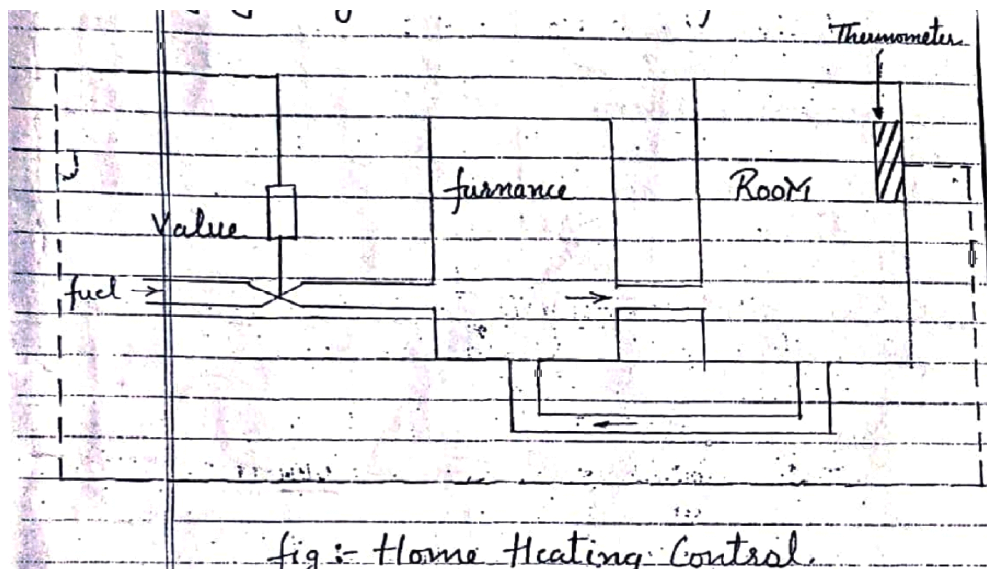 Thermometer
furnance
ROOM
Value
fuel
fig:- Home Heating Control.